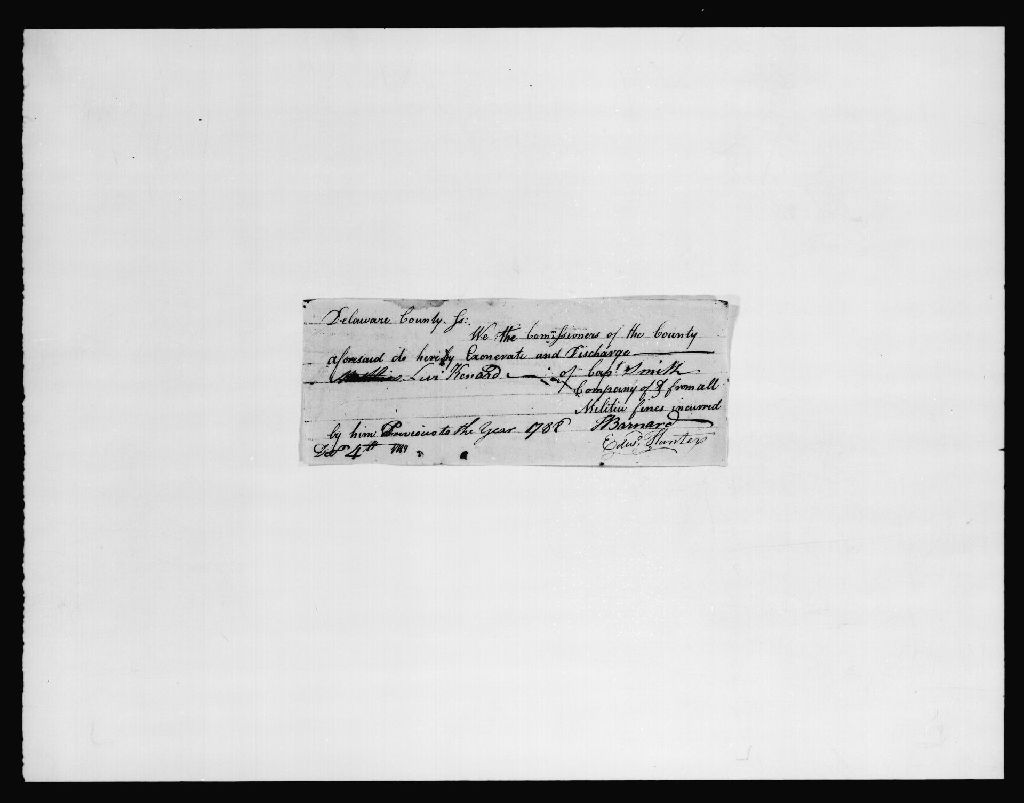 Delaware County Ss.
We the Commissioners of the County
aforesaid do hereby Exonerate and Discharge
Levi Kenard of Capt. Smith
Company of & from all
Militia fines incurred
by him Previous to the Year 1788 Barnard
Decr 4th 1789 Edwd. Hunter